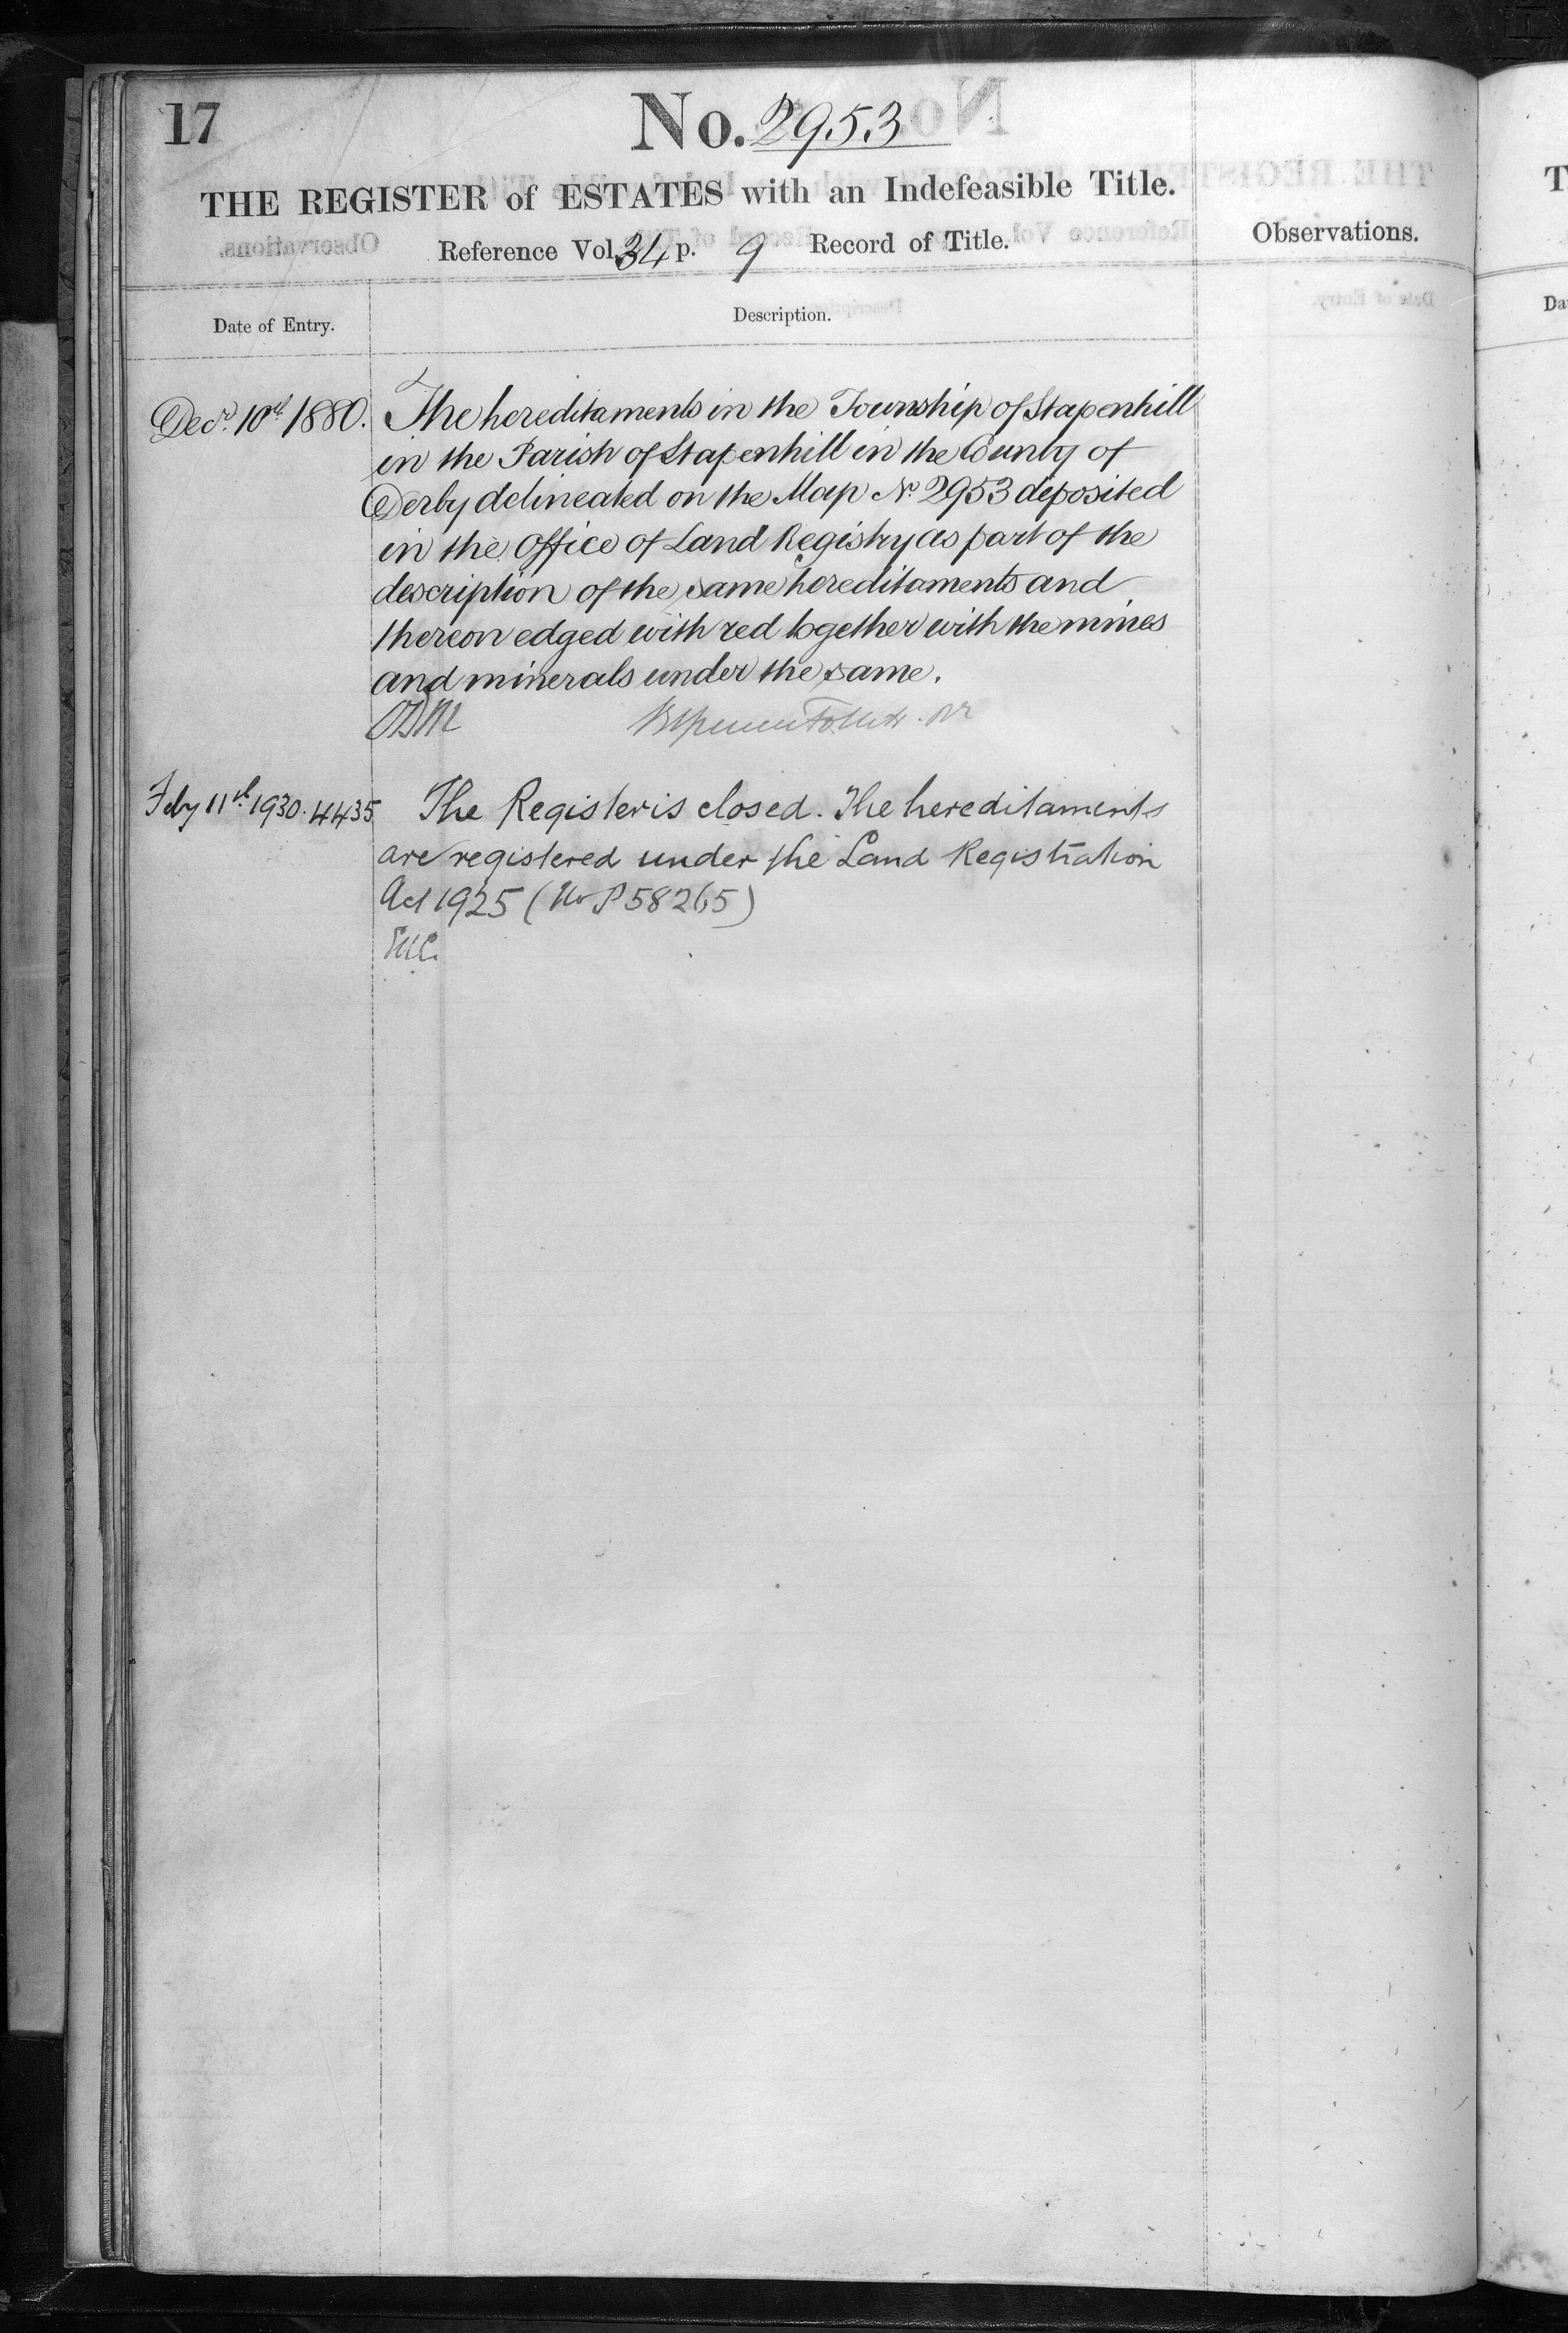 17
No. 2953
THE REGISTER of ESTATES with an Indefeasible Title.
Reference Vol. 34 p. 9 Record of Title.
Observations.
Date of Entry.
Description.
Decr. 10th 1880. The hereditaments in the Township of Stapenhill
in the Parish of Stapenhill in the County of
Derby delineated on the Map No 2953 deposited
in the Office of Land Registry as part of the
description of the same hereditaments and
thereon edged with red together with the mines
and minerals under the same.
Feby 11th 1930. 4435 The Register is closed. The hereditaments
are registered under the Land Registration
Act 1925 (No P58265)